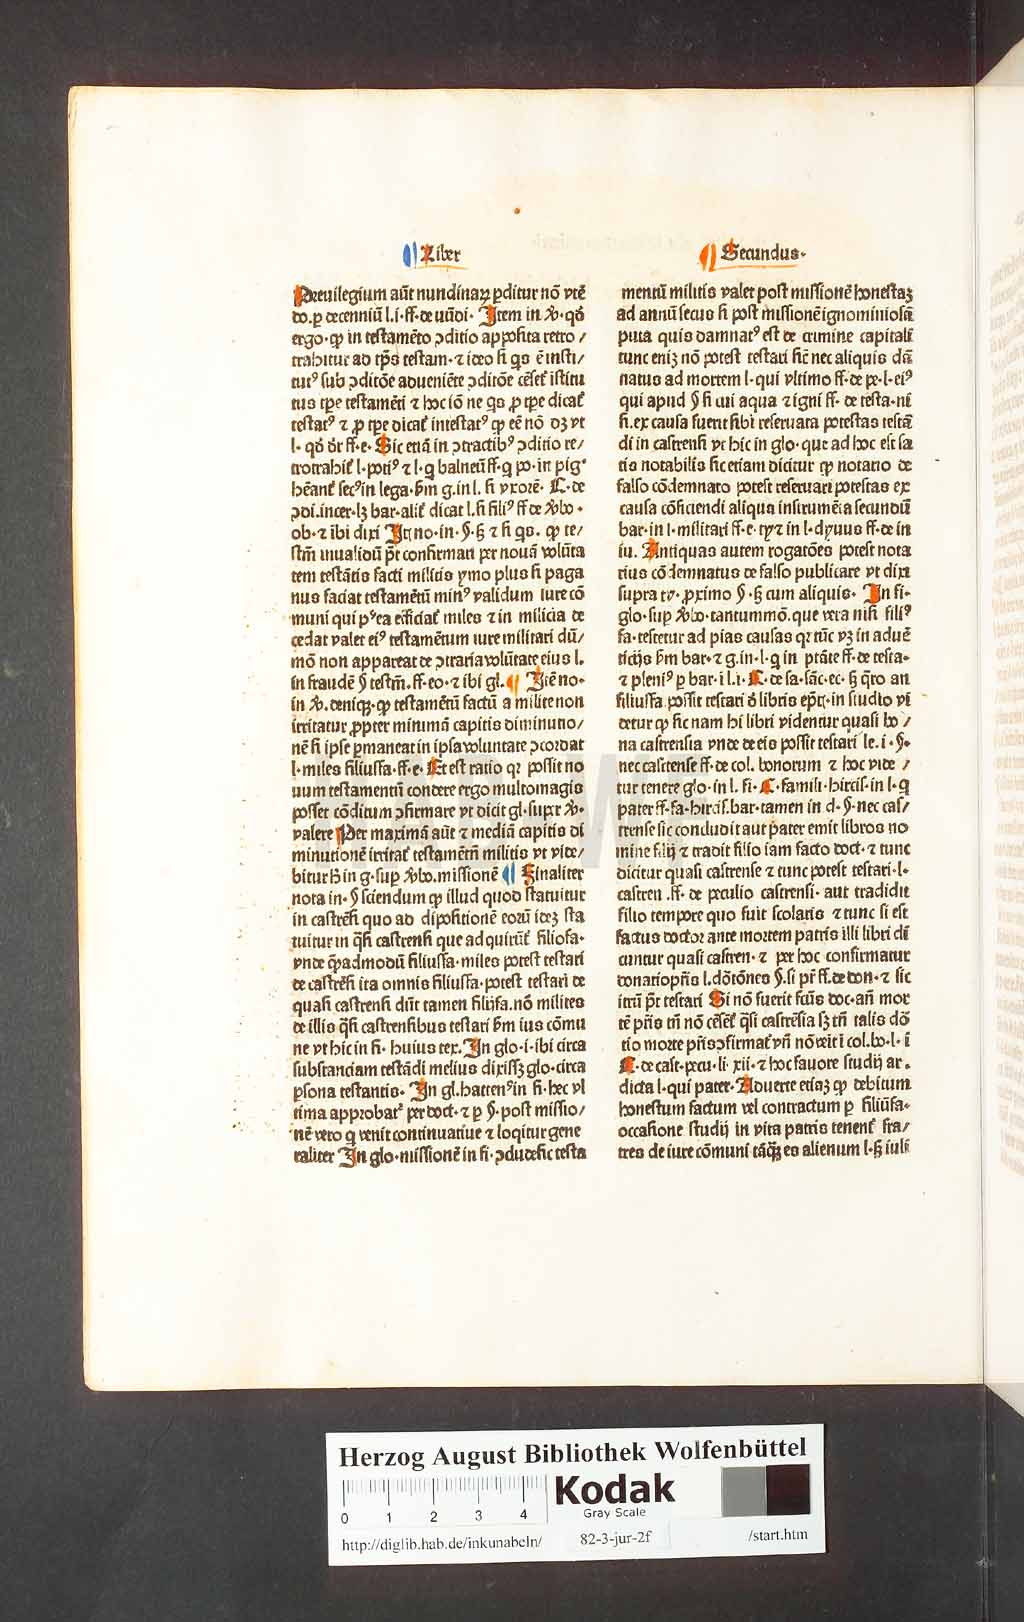 Liber
Secundus.
Preuilegium aūt nundinaꝝ ꝑditur nō vtē
do. ꝑ decenniū l. i. ff. de nūdi. Item in ꝟ. qđ
ergo. ꝙ in testamēto ꝯditio apposita retro /
trahitur ad tꝑs testam. ⁊ ideo si qs ē insti /
tutꝰ sub ꝯditōe adueniēte ꝯditōe cēset̄ īstitu
tus tꝑe testamēti ⁊ hoc iō ne qs ꝓ tꝑe dicat̄
testatꝰ ⁊ ꝓ tꝑe dicat̄ intestatꝰ ꝙ eē nō dꝫ vt
l. qđ dr̄ ff. e. Sic etiā in ꝯtractibꝰ ꝯditio re /
trotrahit̄ l. potiꝰ ⁊ l. q balneū ff. q po. in pigꝰ
hēant̄ secꝰ in lega. ẜm g. in l. si vxorē. C. de
ꝯdi. incer. lꝫ bar. alit̄ dicat l. si filiꝰ ff de ꝟbo.
ob. ⁊ ibi dixi It̄ no. in. §. ꝫ ⁊ si qs. ꝙ te /
stm̄ inualidū pt̄ confirmari per nouā volūta
tem testātis facti militis ymo plus si paga
nus faciat testamētū minꝰ validum iure cō
muni qui pꝰea efficiat̄ miles ⁊ in milicia de
cedat valet eiꝰ testamētum iure militari dū /
mō non appareat de ꝯtraria volūtate eius l.
in fraudē § testm̄. ff. eo. ⁊ ibi gl. Itē no.
in ꝟ. deniqꝫ. ꝙ testamētū factū a milite non
irritatur ꝓpter minimā capitis diminutio /
nē si ipse ꝑmaneat in ipsa voluntate ꝯcordat
l. miles filiusfa. ff. e. Et est ratio qꝛ possit no
uum testamentū condere ergo multomagis
posset cōditum ꝯfirmare vt dicit gl. supͬ ꝟ.
valere Per maximā aūt ⁊ mediā capitis di
minutionē irritat̄ testamētm̄ militis vt vide /
bitur ħ in g. suꝑ ꝟbo. missionē Finaliter
nota in. § sciendum ꝙ illud quod statuitur
in castrēsi quo ad dispositionē eorū ideꝫ sta
tuitur in q̄si castrensi que adquirūt̄ filiofa.
vnde quēadmodū filiusfa. miles potest testari
de castrēsi ita omnis filiusfa. potest testari de
quasi castrensi dūt tamen filiifa. nō milites
de illis q̄si castrensibus testari ẜm ius cōmu
ne vt hic in fi. huius tex. In glo. i. ibi circa
substanciam testādi melius dixisſꝫ glo. circa
ꝑsona testantis. In gl. hactenꝰ in fi. hec vl
tima approbatͬ per doct. ⁊ ꝑ §. post missio /
nē vero q venit continuatiue ⁊ loqitur gene
raliter In glo. missionē in fi. ꝯdu&c sic testa
mentū militis valet post missionē honestaꝫ
ad annū secus si post missionē ignominiosā
puta quis damnatꝰ est de crimine capitali
tunc eniꝫ nō potest testari sic̄ nec aliquis dā
natus ad mortem l. qui vltimo ff. de pe. l. eiꝰ
qui apud § si cui aqua ⁊ igni ff. de testa. ni
si. ex causa fuerit sibi reseruata potestas testā
di in castrensi vt hic in glo. que ad hoc est sa
tis notabilis sic etiam dicitur ꝙ notario de
falso cōdemnato potest reseruari potestas ex
causa cōficiendi aliqua instrumēta secundū
bar. in l. militari ff. e. tytͬ in l. dyuus ff. de in
iu. Antiquas autem rogatōes potest nota
rius cōdemnatus de falso publicare vt dixi
supra tͬ. ꝓximo § ꝫ cum aliquis. In fi.
glo. suꝑ ꝟbo. tantummō. que vera nisi filiꝰ
fa. testetur ad pias causas qꝛ tūc vꝫ in aduē
ticijs ẜm bar. ⁊ g. in. l. q in ptāte ff. de testa.
⁊ pleniꝰ ꝑ bar. i l. i. C. de sa. sāc. ec. ꝫ q̄ro an
filiusfa. possit testari d̄ libris eptͬ. in studio vi
detur ꝙ sic nam hi libri videntur quasi bo /
na castrensia vnde de eis possit testari le. i. §.
nec castrense ff. de col. bonorum ⁊ hoc vide /
tur tenere glo. in l. fi. C. famili. hircis. in l. q
pater ff. fa. hircis. bar. tamen in d. §. nec cas /
trense sic concludit aut pater emit libros no
mine filij ⁊ tradit filio iam facto doct. ⁊ tunc
dicitur quasi castrense ⁊ tunc potest testari. l.
castren. ff. de peculio castrensi. aut tradidit
filio tempore quo fuit scolaris ⁊ tunc si est
factus doctor ante mortem patris illi libri di
cuntur quasi castren. ⁊ per hoc confirmatur
donatio pr̄is l. dōtōnes §. si pr̄ ff. de don. ⁊ sic
itm̄ pt̄ testari Si nō fuerit fctūs doc. an̄ mor
tē pr̄is tn̄ nō cēset̄ q̄si castrēsia sꝫ tn̄ talis dō
tio morte pr̄is ꝯfirmat̄ vn̄ nō veit i col. bo. l. i
C. de cast. pecu. li. xii. ⁊ hoc fauore studij ar.
dicta l. qui pater. Aduerte etiaꝫ ꝙ debitum
honestum factum vel contractum ꝑ filiūfa.
occasione studij in vita patris tenent̄ fra /
tres de iure cōmuni tāqꝫ es alienum l. ꝫ iuli
Herzog August Bibliothek Wolfenbüttel
0 1 2 3 4
Kodak
Gray Scale
http://diglib.hab.de/inkunabeln/
82-3-jur-2f
/start.htm
HAB-WF